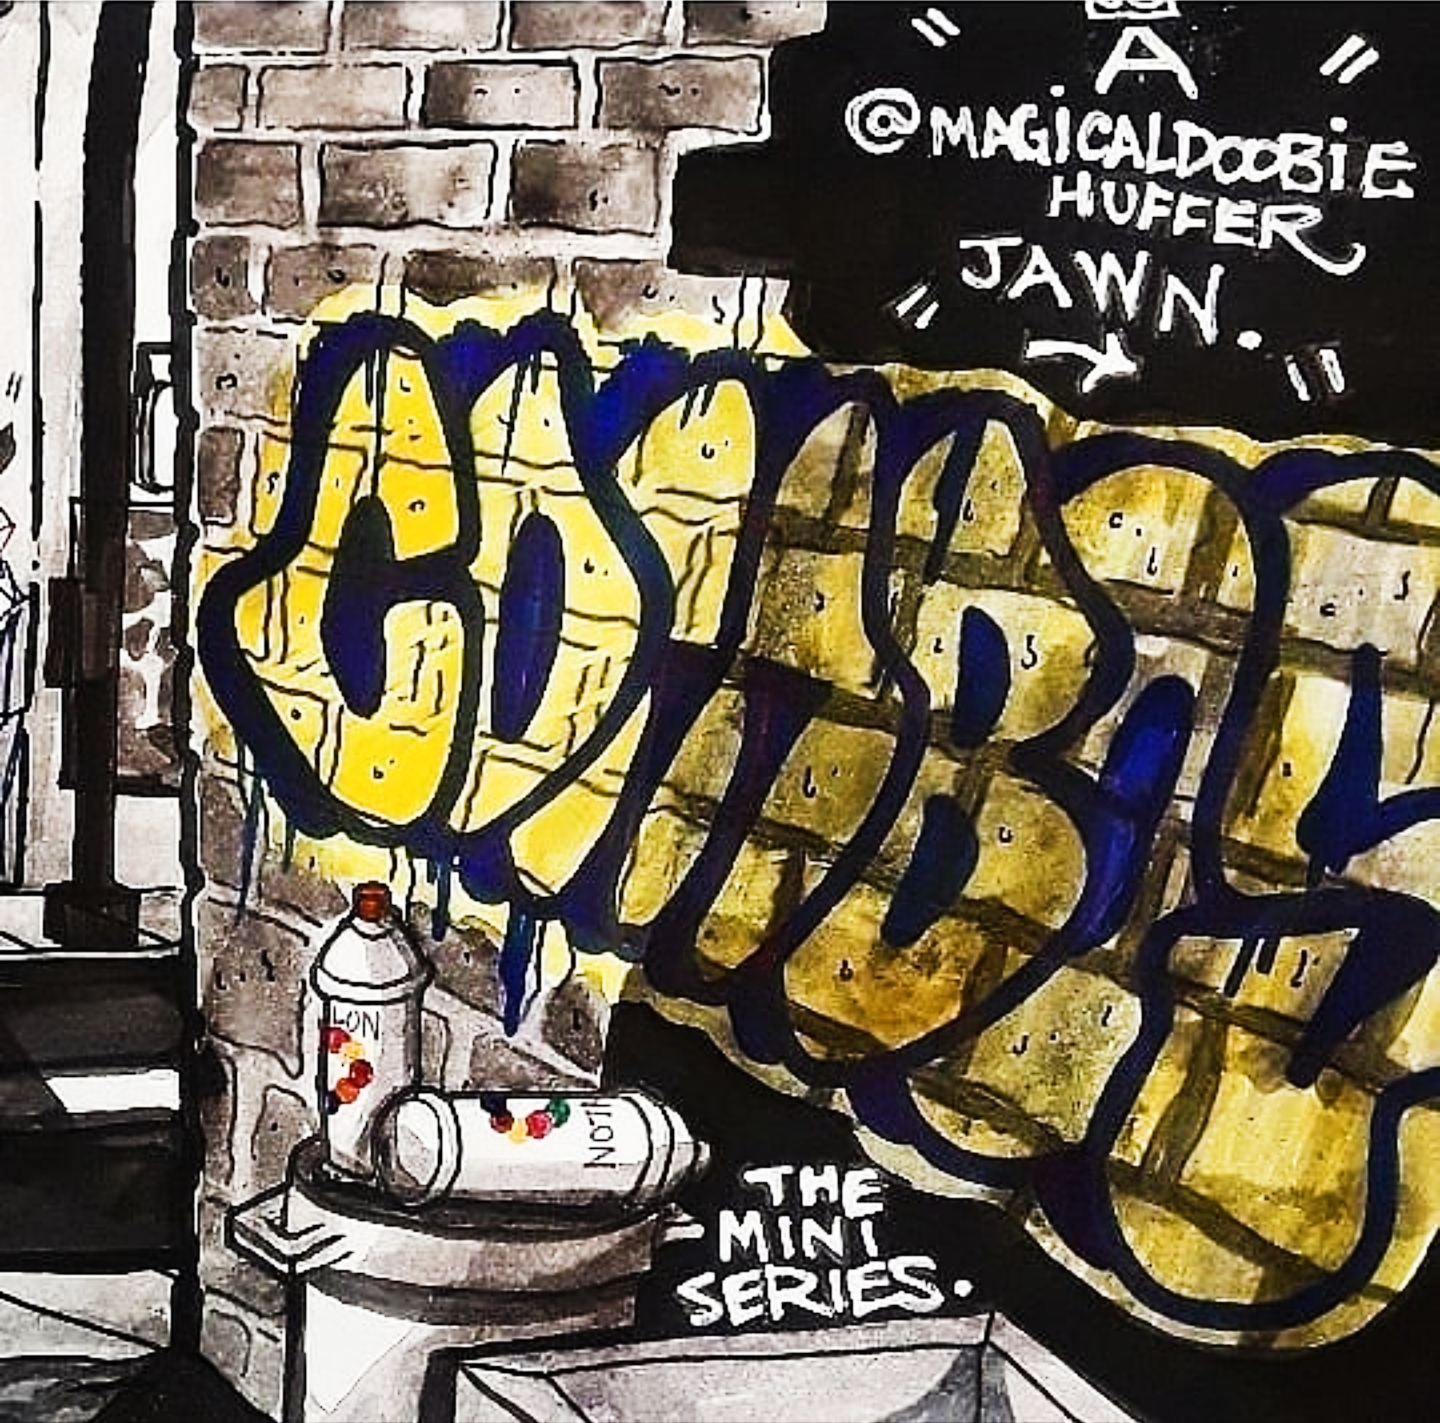 A
@MAGICALDOOBIE
HUFFER
JAWN.
LON
THE
MINI
SERIES.